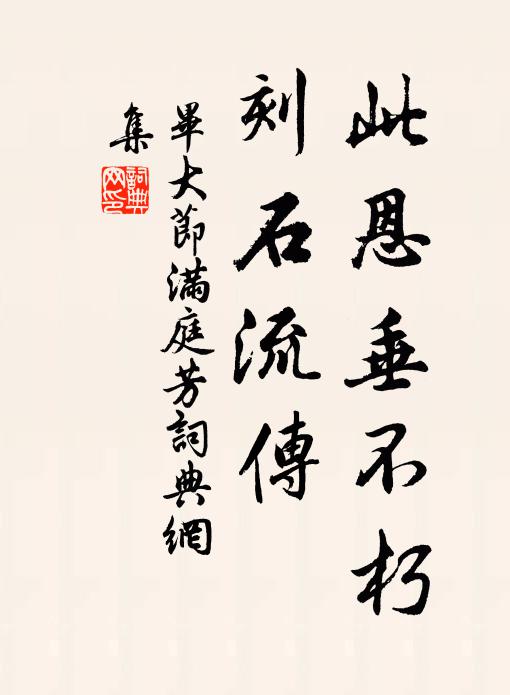 此恩垂不朽
刻石流傳
畢大節滿庭芳詞典網
集
詞典
网印